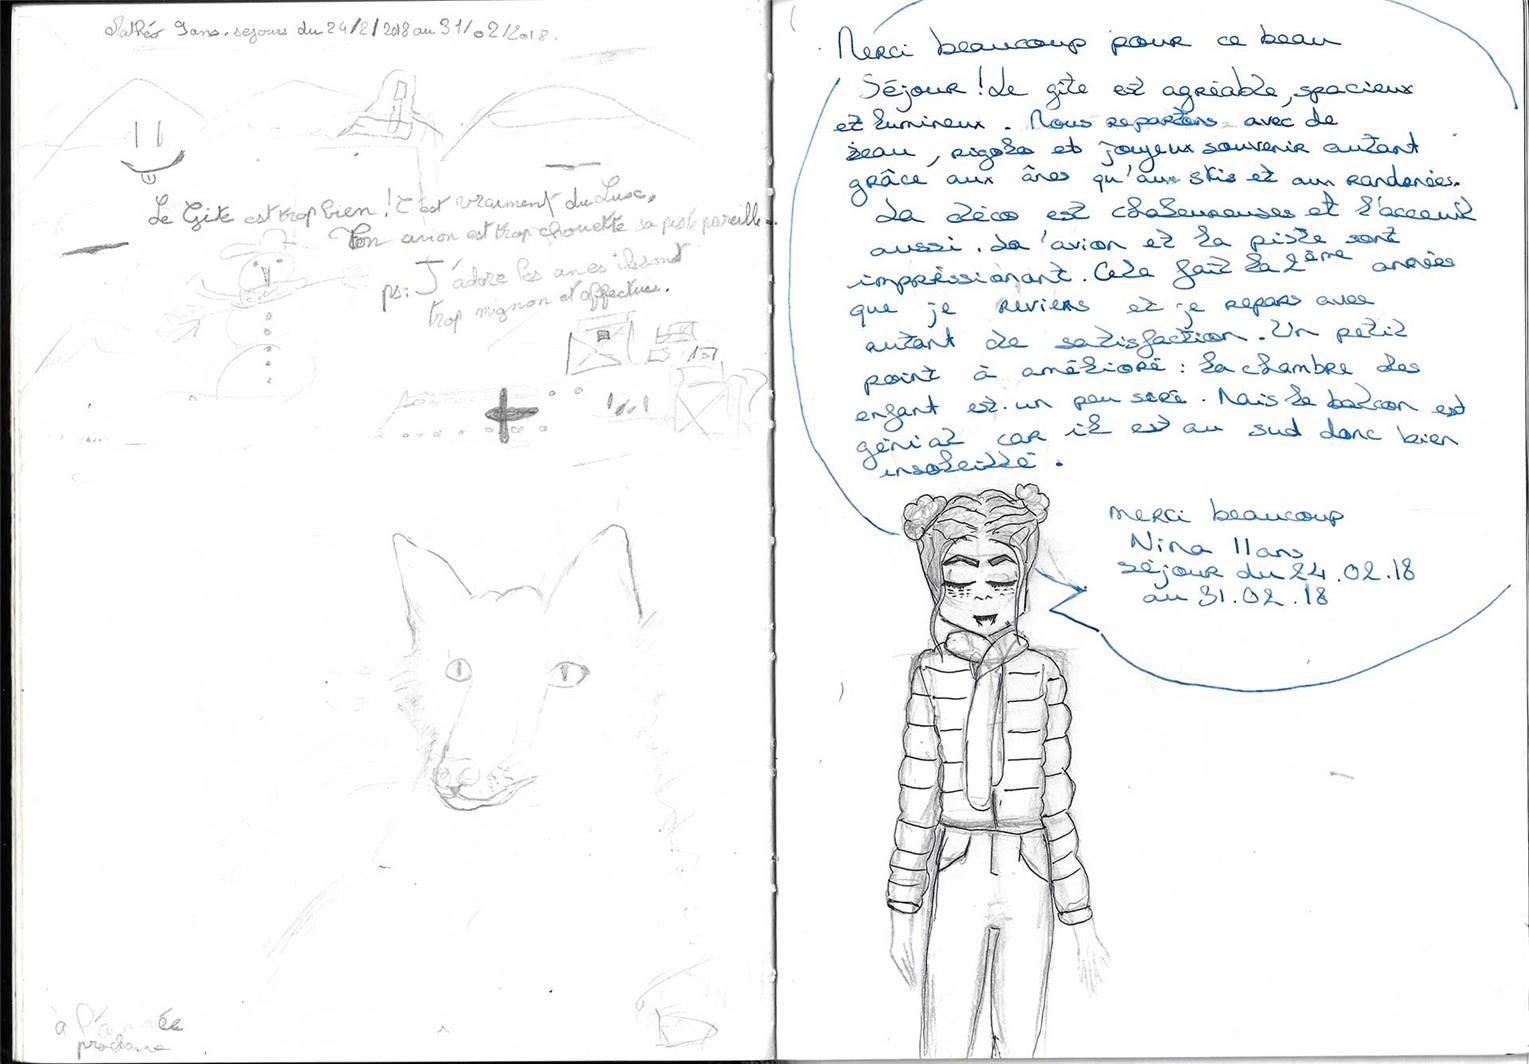 Mathéo 9 ans. sejours du 24/2/2018 au 31/02/2018.
Le Gite est trop bien ! C'est vraiment du Luxe,
Ton avion est trop chouette sa piste pareille.
ps: J'adore les anes ils sont
trop mignon et affectueu.
à l'année
prochaine
Merci beaucoup pour ce beau
Séjour ! Le gîte est agréable, spacieux
et lumineux. Nous repartons avec de
beau, rigolo et joyeux souvenir autant
grâce aux ânes qu'aux skis et aux randonées.
La déco est chaleureuses et l'acceuil
aussi. La l'avion et la piste sont
impréssionant. Cela fait la 2ème années
que je reviens et je repars avec
autant de satisfaction. Un petit
point à amélioré : la chambre des
enfant est un peu séré. Mais le balcon est
génial car il est au sud donc bien
insoleillé.
merci beaucoup
Nina 11ans
séjour du 24.02.18
au 31.02.18